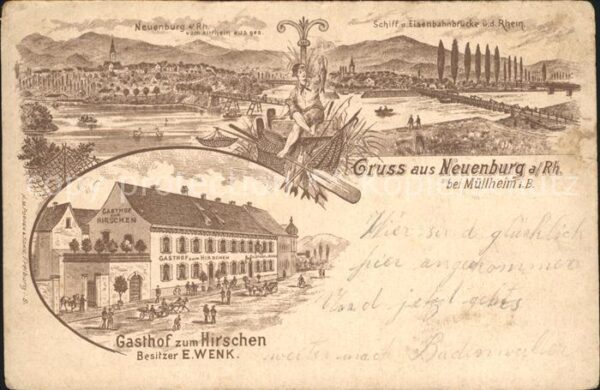 Neuenburg a/Rh.
vom Altrhein aus ges.
Schiff u. Eisenbahnbrücke ü.d. Rhein.
Gruss aus Neuenburg a/Rh.
bei Müllheim i.B.
GASTHOF
ZUM
HIRSCHEN
GASTHOF ZUM HIRSCHEN
Gasthof zum Hirschen
Besitzer E. WENK.
Hier sind glücklich
hier angekommen
Und jetzt gehts
weiter nach Badenweiler